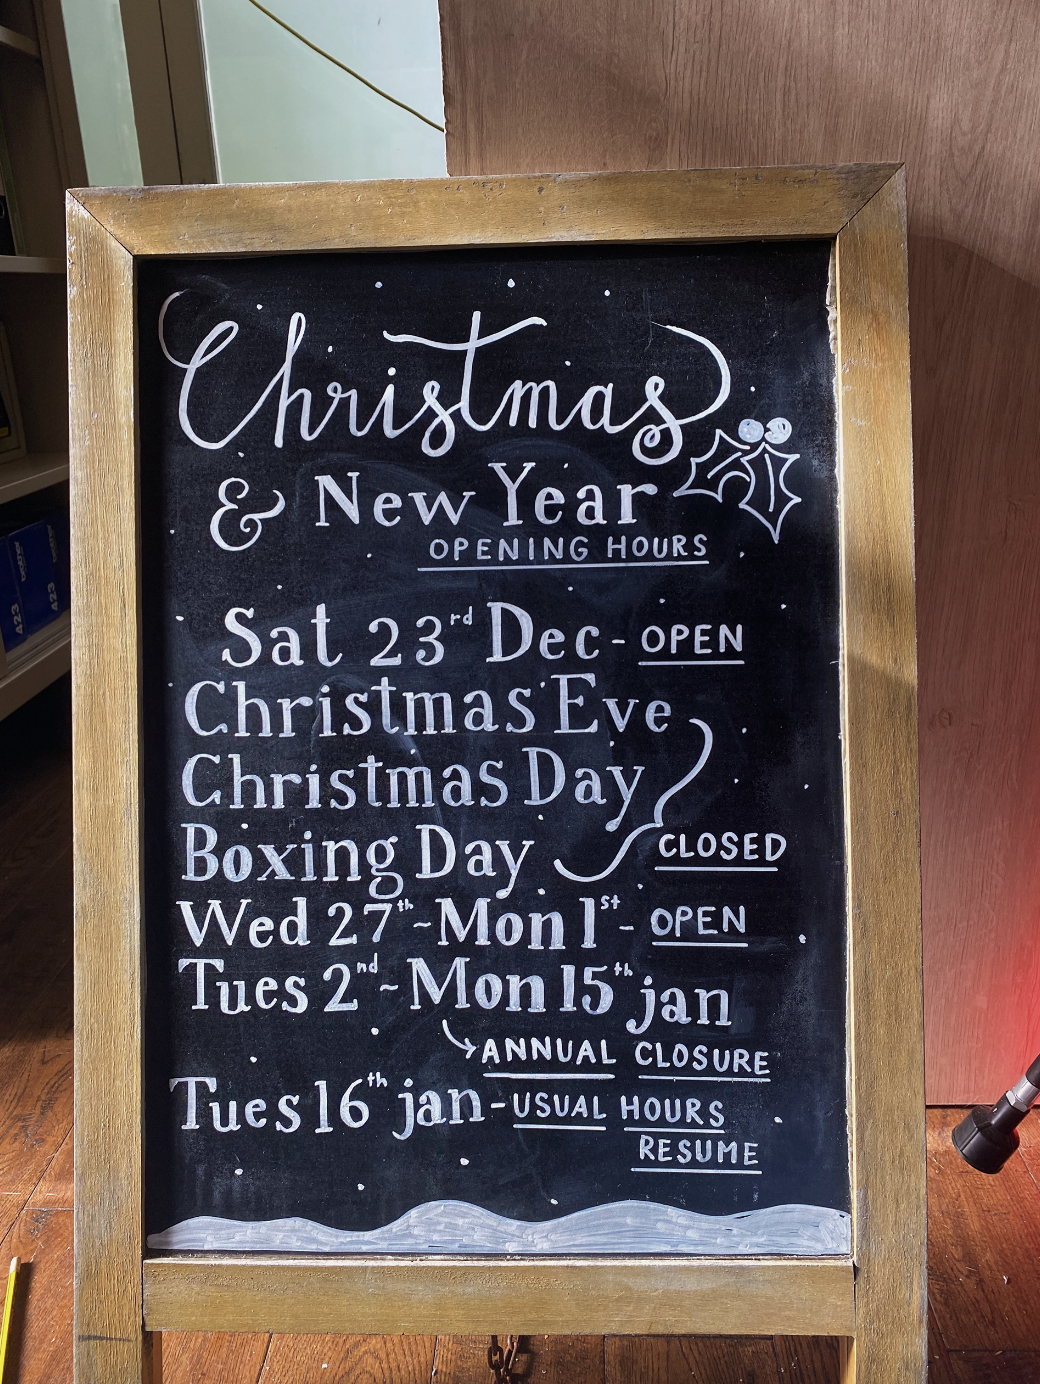 Christmas
& New Year
OPENING HOURS
Sat 23rd Dec - OPEN
Christmas Eve
Christmas Day
Boxing Day CLOSED
Wed 27th ~ Mon 1st - OPEN
Tues 2nd ~ Mon 15th jan
ANNUAL CLOSURE
Tues 16th jan - USUAL HOURS
RESUME
423
423